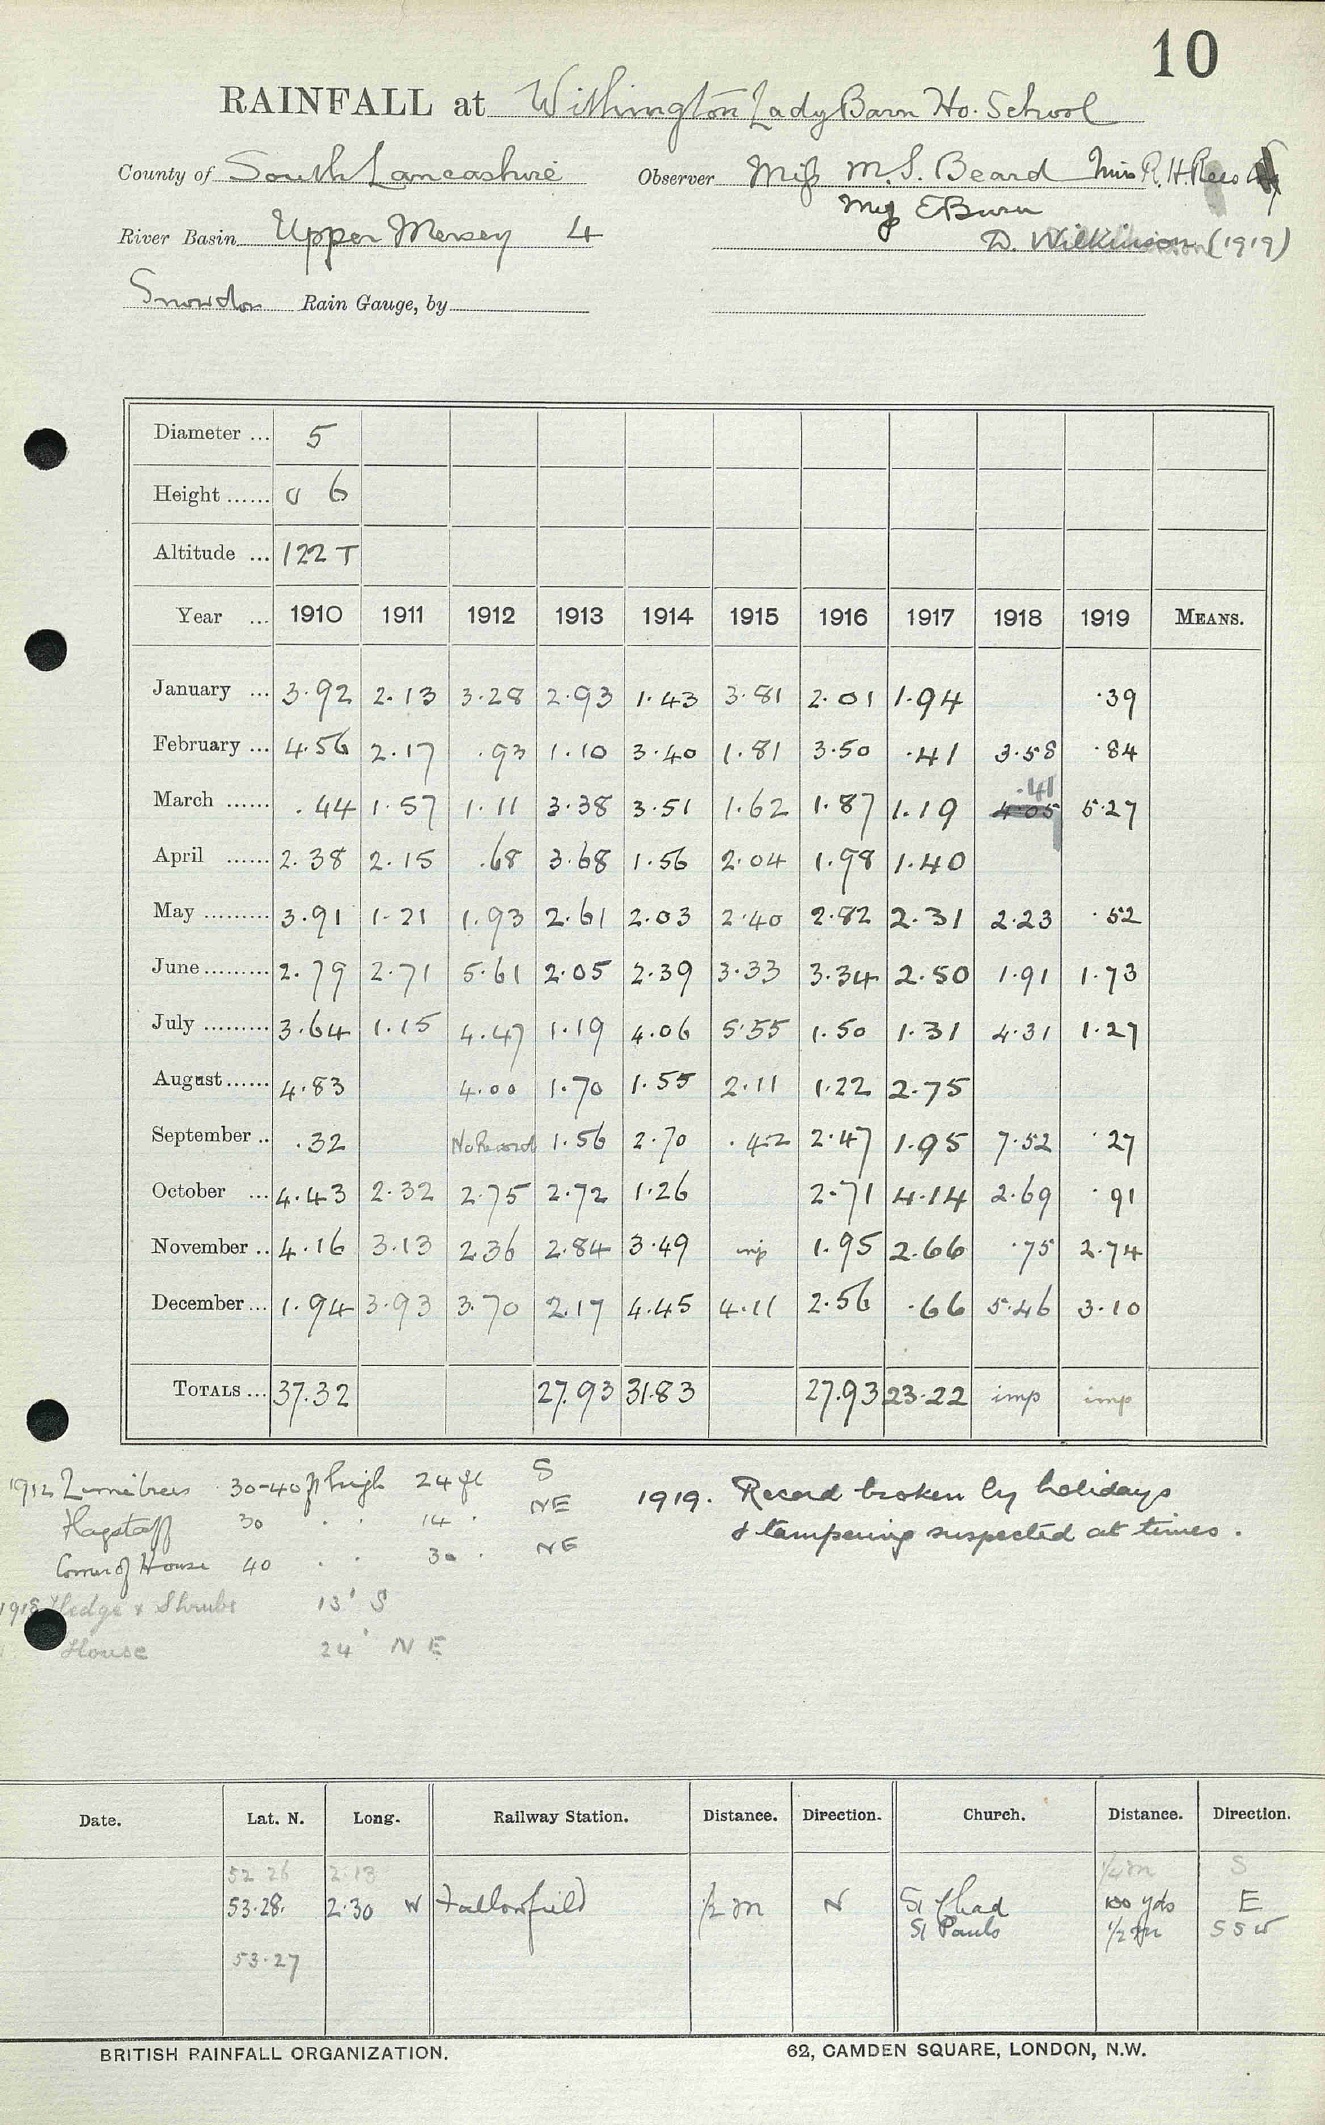 10
RAINFALL at Withington Lady Barn Ho. School
County of South Lancashire Observer Miss M. S. Beard Miss R. H. Rees
Miss E Burn
River Basin Upper Mersey 4 D. Wilkinson (1919)
Snowdon Rain Gauge, by
Diameter ... 5
Height ...... 0 6
Altitude ... 122 T
Year ... 1910 1911 1912 1913 1914 1915 1916 1917 1918 1919 MEANS.
January ... 3.92 2.13 3.28 2.93 1.43 3.81 2.01 1.94 .39
February ... 4.56 2.17 .93 1.10 3.40 1.81 3.50 .41 3.58 .84
.41
March ...... .44 1.57 1.11 3.38 3.51 1.62 1.87 1.19 4.05 5.27
April ...... 2.38 2.15 .68 3.68 1.56 2.04 1.98 1.40
May ......... 3.91 1.21 1.93 2.61 2.03 2.40 2.82 2.31 2.23 .52
June ......... 2.79 2.71 5.61 2.05 2.39 3.33 3.34 2.50 1.91 1.73
July ......... 3.64 1.15 4.47 1.19 4.06 5.55 1.50 1.31 4.31 1.27
August ...... 4.83 4.00 1.70 1.55 2.11 1.22 2.75
September .. .32 No Record 1.56 2.70 .42 2.47 1.95 7.52 .27
October ... 4.43 2.32 2.75 2.72 1.26 2.71 4.14 2.69 .91
November .. 4.16 3.13 2.36 2.84 3.49 imp 1.95 2.66 .75 2.74
December ... 1.94 3.93 3.70 2.17 4.45 4.11 2.56 .66 5.46 3.10
TOTALS ... 37.32 27.93 31.83 27.93 23.22 imp imp
1912 Lime trees 30-40 ft high 24 ft S
Flagstaff 30 . . 14 . NE
Corner of House 40 . . 30 . NE
1919. Record broken by holidays
& tampering suspected at times.
1918 Hedge & Shrubs 13' S
House 24' N E
Date. Lat. N. Long. Railway Station. Distance. Direction. Church. Distance. Direction.
52 26 2.13 1/4 m S
53.28. 2.30 W Fallowfield 1/2 m N St Chad 100 yds E
St Pauls 1/2 m SSW
53.27
BRITISH RAINFALL ORGANIZATION. 62, CAMDEN SQUARE, LONDON, N.W.